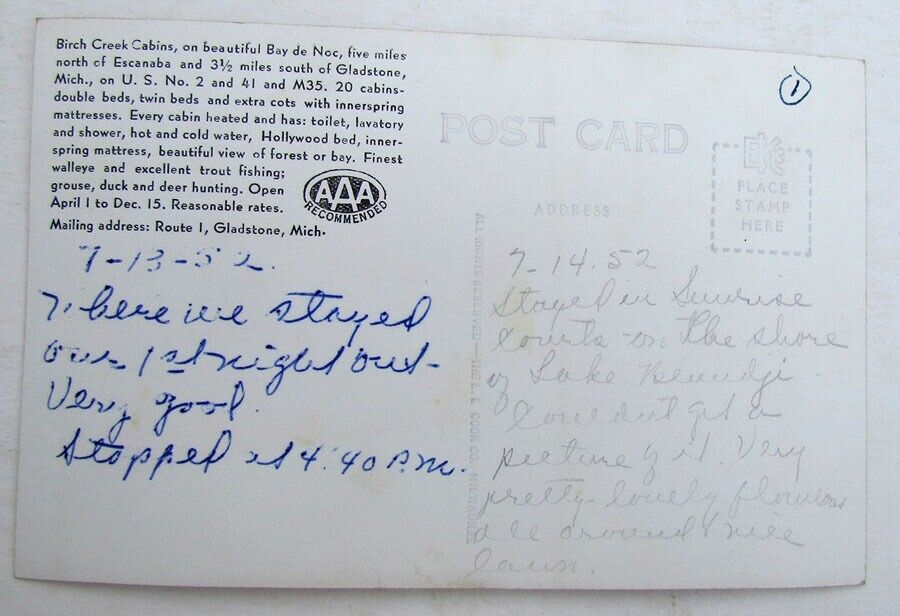 Birch Creek Cabins, on beautiful Bay de Noc, five miles
north of Escanaba and 3½ miles south of Gladstone,
Mich., on U. S. No. 2 and 41 and M35. 20 cabins-
double beds, twin beds and extra cots with innerspring
mattresses. Every cabin heated and has: toilet, lavatory
and shower, hot and cold water, Hollywood bed, inner-
spring mattress, beautiful view of forest or bay. Finest
walleye and excellent trout fishing;
grouse, duck and deer hunting. Open
April 1 to Dec. 15. Reasonable rates.
Mailing address: Route 1, Gladstone, Mich.
AAA
RECOMMENDED
7-13-52.
Where we stayed
our 1st night out-
Very good.
Stopped at 4:40 P.M.
1
POST CARD
PLACE
STAMP
HERE
ADDRESS
ALL RIGHTS RESERVED—THE L. L. COOK CO. MILWAUKEE
7-14.52
Stayed in Sunrise
Courts-on the shore
of Lake Bemidji-
Couldn't get a
picture of it. Very
pretty-lovely flowers
all around & nice
lawn.